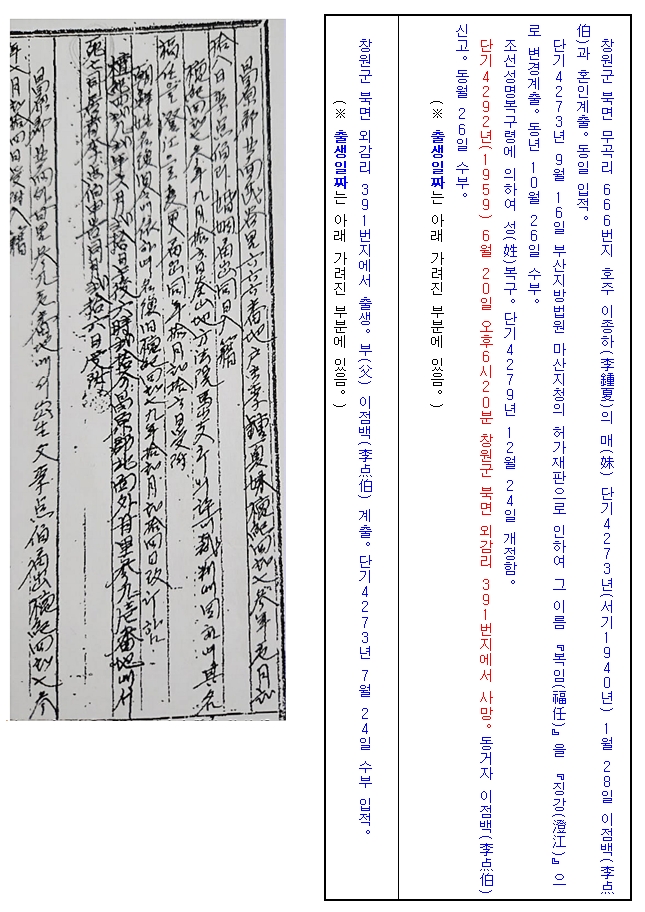 창원군 북면 무곡리 666번지 호주 이종하(李鍾夏)의 매(妹) 단기4273년(서기1940년) 1월 28일 이점백(李点
伯)과 혼인계출. 동일 입적.
단기4273년 9월 16일 부산지방법원 마산지청의 허가재판으로 인하여 그 이름 『복임(福任)』을 『징강(澄江)』으
로 변경계출. 동년 10월 26일 수부.
조선성명복구령에 의하여 성(姓)복구. 단기4279년 12월 24일 개정함.
단기4292년(1959) 6월 20일 오후6시20분 창원군 북면 외감리 391번지에서 사망. 동거자 이점백(李点伯)
신고. 동월 26일 수부.
(※ 출생일짜는 아래 가려진 부분에 있음.)
창원군 북면 외감리 391번지에서 출생. 부(父) 이점백(李点伯) 계출. 단기4273년 7월 24일 수부 입적.
(※ 출생일짜는 아래 가려진 부분에 있음.)
昌原郡北面 里六六六番地戶主李鍾夏妹檀紀四二七參年壹月
拾八日李点伯과 婚姻届出同日入籍
檀紀四二七參年九月拾六日釜山地方法院馬山支廳의許可裁判에因하여其名
福任을澄江으로變更届出同年拾月 拾六日受附
朝鮮姓名復舊令에依하여姓復舊檀紀四二七九年拾 月 拾四日改訂함
檀紀四 九 年六月 拾日午後六時 拾分昌原郡北面外甘里參九壱番地에서
死亡同居者李点伯申告同月 拾六日受附
昌原郡北面外甘里參九壱番地에서出生父李点伯届出檀紀四 七參
年七月 拾四日受附入籍